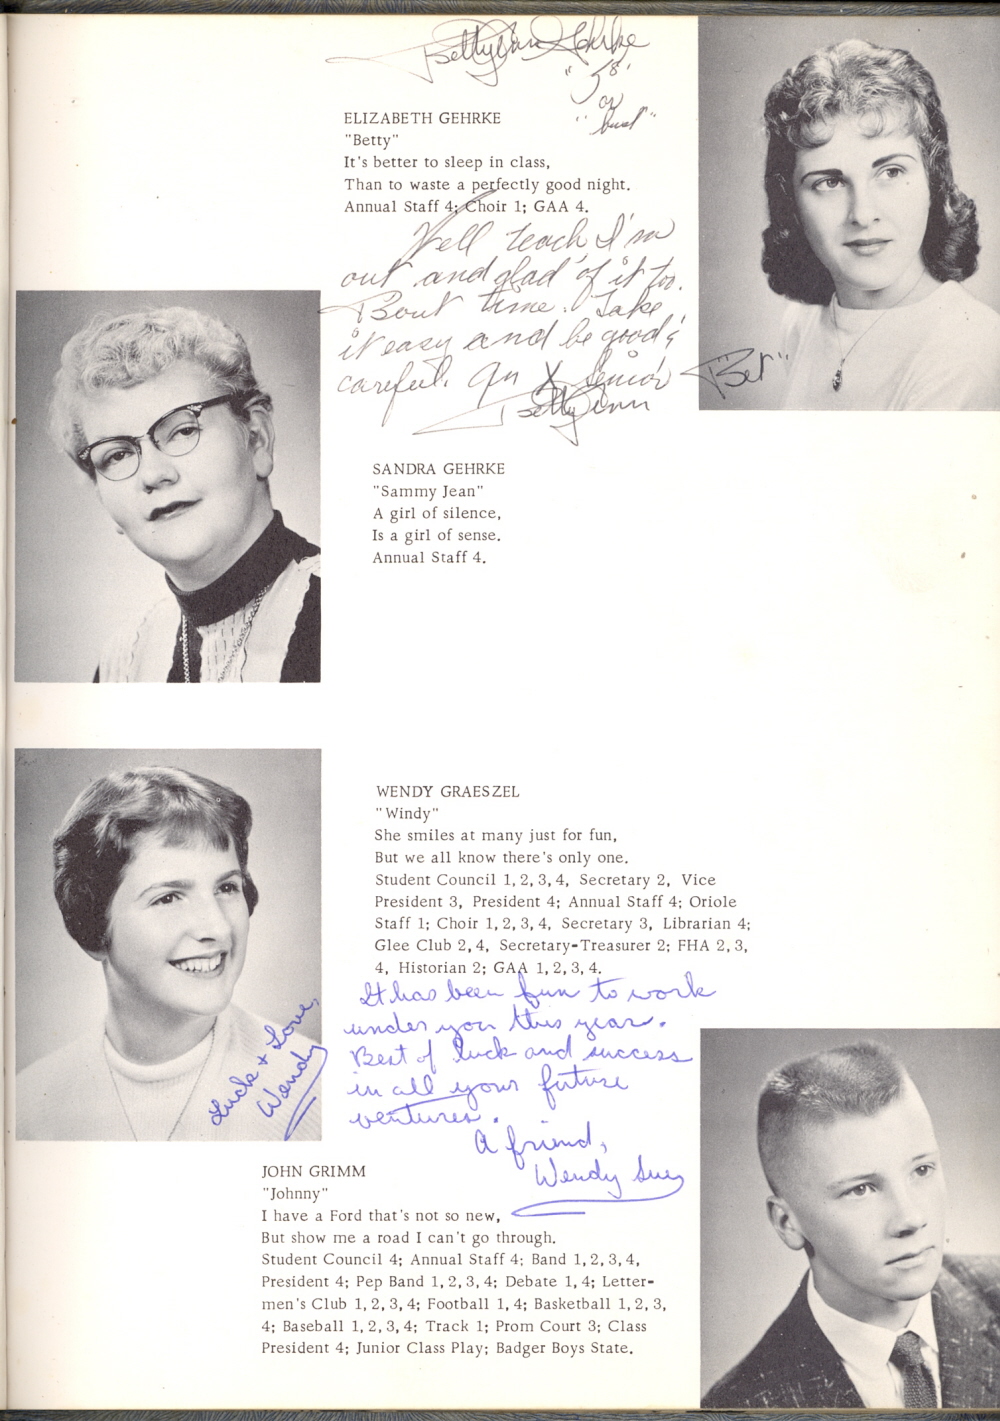 Bettyann Gehrke
"58"
or
"bust"
ELIZABETH GEHRKE
"Betty"
It's better to sleep in class,
Than to waste a perfectly good night.
Annual Staff 4; Choir 1; GAA 4.
Well teach I'm
out and glad of it too.
Bout time. Take
it easy and be good &
careful. An X Senior
Bettyann
"Bet"
SANDRA GEHRKE
"Sammy Jean"
A girl of silence,
Is a girl of sense.
Annual Staff 4.
WENDY GRAESZEL
"Windy"
She smiles at many just for fun,
But we all know there's only one.
Student Council 1, 2, 3, 4, Secretary 2, Vice
President 3, President 4; Annual Staff 4; Oriole
Staff 1; Choir 1, 2, 3, 4, Secretary 3, Librarian 4;
Glee Club 2, 4, Secretary-Treasurer 2; FHA 2, 3,
4, Historian 2; GAA 1, 2, 3, 4.
It has been fun to work
under you this year.
Best of luck and success
in all your future
ventures.
A friend,
Wendy Sue
Luck & Love,
Wendy
JOHN GRIMM
"Johnny"
I have a Ford that's not so new,
But show me a road I can't go through.
Student Council 4; Annual Staff 4; Band 1, 2, 3, 4,
President 4; Pep Band 1, 2, 3, 4; Debate 1, 4; Letter-
men's Club 1, 2, 3, 4; Football 1, 4; Basketball 1, 2, 3,
4; Baseball 1, 2, 3, 4; Track 1; Prom Court 3; Class
President 4; Junior Class Play; Badger Boys State.